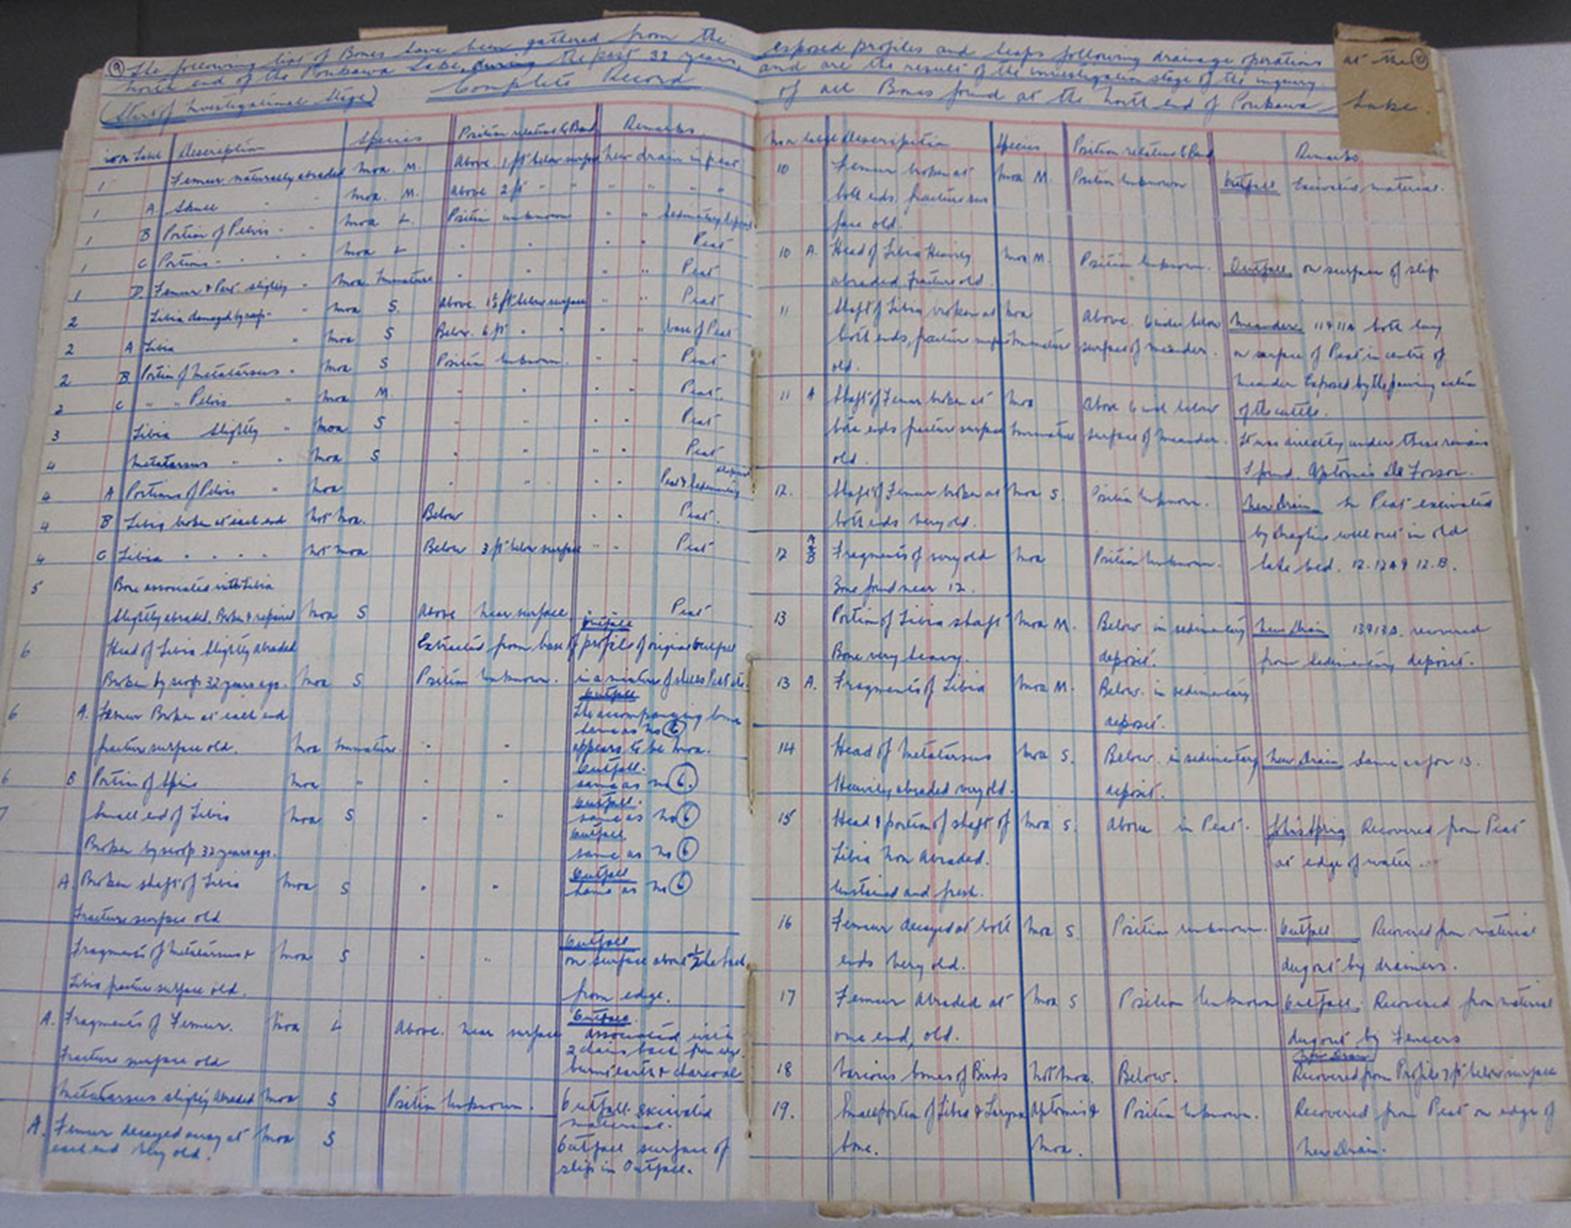 The following list of Bones have been gathered from the exposed profiles and heaps following drainage operations at the
north end of the Poukawa Lake, during the past 32 years, and are the result of the investigation stage of the inquiry.
(Start of Investigational Stage) Complete Record of all Bones found at the north end of Poukawa Lake.
Description Species Position relative to Band Remarks.
1 Femur naturally abraded moa M. Above 1 ft below surface new drain in peat
1 A Skull " " moa. M. Above 2 ft " " " " " "
1 B Portion of Pelvis " " moa L. Position unknown " " Sedimentary deposit
1 C Portions " " " " moa L " " " " Peat
1 D Femur & Part slightly " moa Immature " " " " Peat
2 Tibia damaged by " moa S. Above 1½ ft below surface " " Peat
2 A Tibia " moa S Below 6 ft " " " " base of Peat
2 B Portion of Metatarsus " moa S Position Unknown. " " Peat
2 C " " Pelvis " moa M. " " " " Peat.
3 Tibia slightly " moa S " " " " Peat
4 Metatarsus " " " moa S " " " " Peat
4 A Portions of Pelvis " moa " " " Peat & Sedimentary deposit
4 B Tibia broken at each end not moa. Below " " Peat.
4 C Tibia " " " " not moa Below 3 ft below surface " " Peat
5 Bone associated with Tibia
slightly abraded. Broken & repaired moa S Above near surface Peat
6 Head of Tibia slightly abraded Extracted from base of profile of original outfall
Outfall
Broken by scoop 32 years ago. moa S Position Unknown. in a mixture of Peat etc.
6 A. Femur Broken at each end Outfall the accompanying bone
same as no 6
fracture surface old. moa Immature " " appears to be moa.
6 B Portion of Spine moa " " " Outfall. same as no 6.
7 Small end of Tibia moa S " " Outfall. same as no 6
Broken by scoop 32 years ago. Outfall same as no 6
A. Broken shaft of Tibia moa S " " Outfall same as no 6
Fracture surface old
Fragments of Metatarsus & moa S " " Outfall on surface about ½ chn back
Tibia fracture surface old. from edge.
A. Fragments of Femur. moa L Above. near surface Outfall. associated with
Fracture surface old 2 chains back from edge. burnt earth & charcoal
Metatarsus slightly abraded moa S Position Unknown. Outfall excavated material.
A. Femur decayed away at moa S Outfall surface of
each end Very old. slip in Outfall.
Description Species Position relative to Band Remarks
10 Femur broken at moa M. Position Unknown Outfall Excavated material.
both ends. fracture sur
face old.
10 A. Head of Tibia Heavily moa M. Position Unknown. Outfall on surface of slip
abraded fracture old.
11 Shaft of Tibia broken at moa Above 6 inches below Meander 11 & 11A both lay
both ends, fracture Immature surface of meander. on surface of Peat in centre of
old. meander Exposed by the action
11 A Shaft of Femur broken at moa Above 6 inch below of the cattle.
both ends fracture surface Immature surface of meander. It was directly under these remains
old. I found. Aptornis De Fossor.
12. Shaft of Femur broken at moa S. Position Unknown. New Drain In Peat excavated
both ends Very old. by dragline well out in old
12 A & B Fragments of very old moa Position Unknown. lake bed. 12. 12A & 12.B.
Bone found near 12.
13 Portion of Tibia shaft moa M. Below in sedimentary New Drain 13 & 13A. recovered
Bone very heavy. deposit. from Sedimentary deposit.
13 A. Fragments of Tibia moa M. Below. in sedimentary
deposit.
14 Head of Metatarsus moa S. Below. in sedimentary New Drain Same as for 13.
Heavily abraded very old. deposit.
15 Head & portion of shaft of moa S. Above in Peat. Recovered from Peat
Tibia Non Abraded. at edge of water.
Unstained and fresh.
16 Femur decayed at both moa S. Position unknown. Outfall Recovered from material
ends Very old. dugout by drainers.
17 Femur abraded at moa S Position Unknown Outfall. Recovered from material
one end, old. dugout by Fencers
18 Various bones of Birds not moa. Below. New Drain Recovered from Profile 3 ft below surface
19. Small portion of Tibia & Aptornis & Position Unknown. Recovered from Peat on edge of
bone. moa. New Drain.